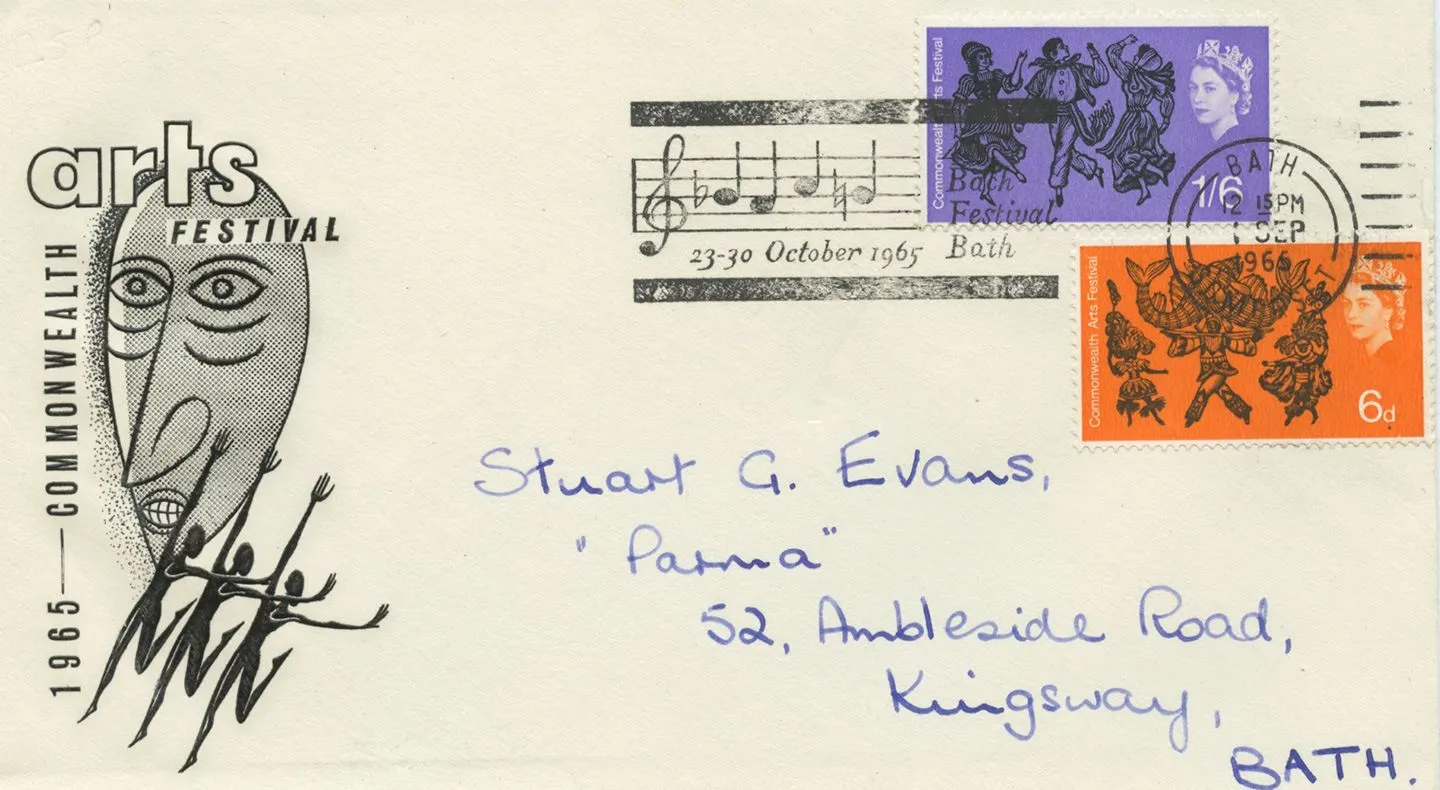 arts
FESTIVAL
1965 — COMMONWEALTH
Bath
Festival
23-30 October 1965 Bath
Commonwealth Arts Festival
1/6
BATH
12 15 PM
1 SEP
1965
Commonwealth Arts Festival
6d
Stuart G. Evans,
"Parma"
52, Ambleside Road,
Kingsway,
BATH.